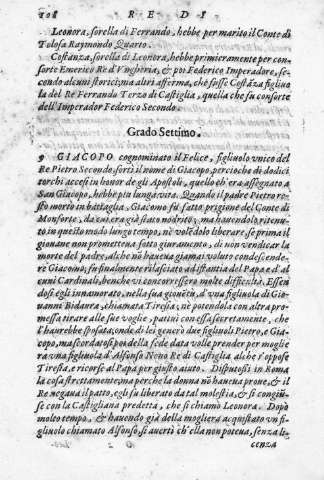 108 R E D I
Leonora, sorella di Ferrando, hebbe per marito il Conte di
Tolosa Raymondo Quarto.
Costanza, sorella di Leonora, hebbe primieramente per con-
sorte Emerico Re d'Vngheria, & poi Federico Imperadore, se-
condo alcuni storici; ma altri afferma, che fusse Costãza figliuo
la del Re Ferrando Terzo di Castiglia, quella che fu consorte
dell'Imperador Federico Secondo.
Grado Settimo.
9 GIACOPO cognominato il Felice, figliuolo vnico del
Re Pietro Secondo sortì il nome di Giacopo, percioche di dodici
torchi accesi in honor de gli Apostoli, quello ch'era assegnato a
San Giacopo, hebbe piu lunga vita. Quando il padre Pietro re-
stò morto in battaglia, Giacomo fu fatto prigione del Conte di
Monforte, da cui era già stato nodrito; ma hauendolo ritenu-
to in questo modo lungo tempo, nè volẽdolo liberare, se prima il
giouane non prometteua sotto giuramento, di non vendicar la
morte del padre, al che nõ hauẽa giamai voluto condescende-
re Giacomo; fu finalmente rilasciato ad istantia del Papa e d'al
cuni Cardinali, benche vi concorressero molte difficultà. Essen
dosi egli innamorato, nella sua giouẽtù, d'vna figliuola di Gio-
uanni Bidaura, chiamata Tiresia, nè potendola con altra pro-
messa tirare alle sue voglie, patuì con essa secretamente, che
l'haurebbe sposata; onde di lei generò due figliuoli Pietro, e Gia-
copo, ma scordatosi poi della fede data volle prender per moglie
ra vna figliuola d'Alfonso Nono Re di Castiglia al che s'oppose
Tiresia, e ricorse al Papa per giusto aiuto. Disputossi in Roma
la cosa strettamente; ma perche la donna nõ haueua proue, & il
Re negaua il patto, egli fu liberato da tal molestia, & si congiũ-
se con la Castigliana predetta, che si chiamò Leonora. Dopò
molto tempo, & hauendo già della mogliera acquistato vn fi-
gliuolo chiamato Alfonso, si auertì ch'ella non poteua, senza li-
cenza